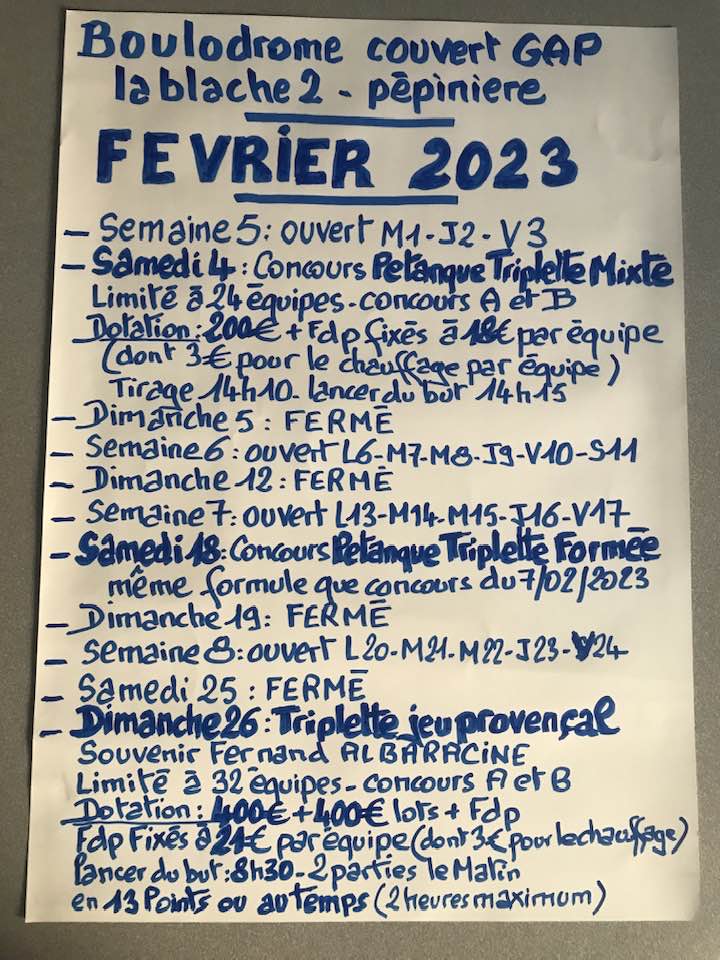 Boulodrome couvert GAP
la blache 2 - pépiniere
FEVRIER 2023
- Semaine 5 : ouvert M1 - J2 - V3
- Samedi 4 : Concours Petanque Triplette Mixte
Limité à 24 équipes - concours A et B
Dotation : 200€ + Fdp fixés à 18€ par équipe
(dont 3€ pour le chauffage par équipe)
Tirage 14h10 - lancer du but 14h15
- Dimanche 5 : FERMÉ
- Semaine 6 : ouvert L6-M7-M8-J9-V10-S11
- Dimanche 12 : FERMÉ
- Semaine 7 : ouvert L13-M14-M15-J16-V17
- Samedi 18 : Concours Petanque Triplette Formée
même formule que concours du 7/02/2023
- Dimanche 19 : FERMÉ
- Semaine 8 : ouvert L20-M21-M22-J23-V24
- Samedi 25 : FERMÉ
- Dimanche 26 : Triplette jeu provençal
Souvenir Fernand ALBARACINE
Limité à 32 équipes - concours A et B
Dotation : 400€ + 400€ lots + Fdp
Fdp Fixés à 21€ par équipe (dont 3€ pour le chauffage)
Lancer du but : 8h30 - 2 parties le Matin
en 13 Points ou au Temps (2 heures maximum)